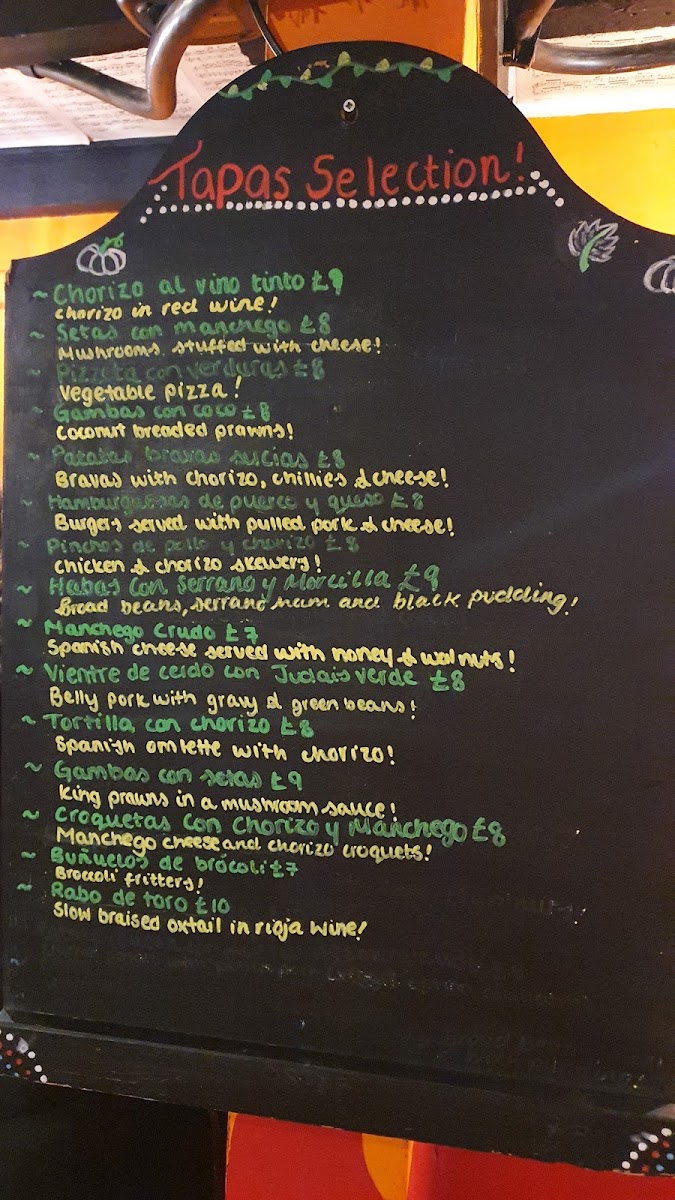 Tapas Selection!
~ Chorizo al vino tinto £9
chorizo in red wine!
~ Setas con manchego £8
Mushrooms stuffed with cheese!
~ Pizzeta con verduras £8
Vegetable pizza!
~ Gambas con coco £8
Coconut breaded prawns!
~ Patatas bravas sucias £8
Bravas with chorizo, chillies & cheese!
~ Hamburguesas de puerco y queso £8
Burgers served with pulled pork & cheese!
~ Pinchos de pollo y chorizo £8
chicken & chorizo skewers!
~ Habas con Serrano y Morcilla £9
Broad beans, serrano ham and black pudding!
~ Manchego Crudo £7
Spanish cheese served with honey & walnuts!
~ Vientre de cerdo con Judais verde £8
Belly pork with gravy & green beans!
~ Tortilla con chorizo £8
Spanish omlette with chorizo!
~ Gambas con setas £9
King prawns in a mushroom sauce!
~ Croquetas Con Chorizo y Manchego £8
Manchego cheese and chorizo croquets!
~ Buñuelos de brócoli £7
Broccoli fritters!
~ Rabo de toro £10
Slow braised oxtail in rioja wine!